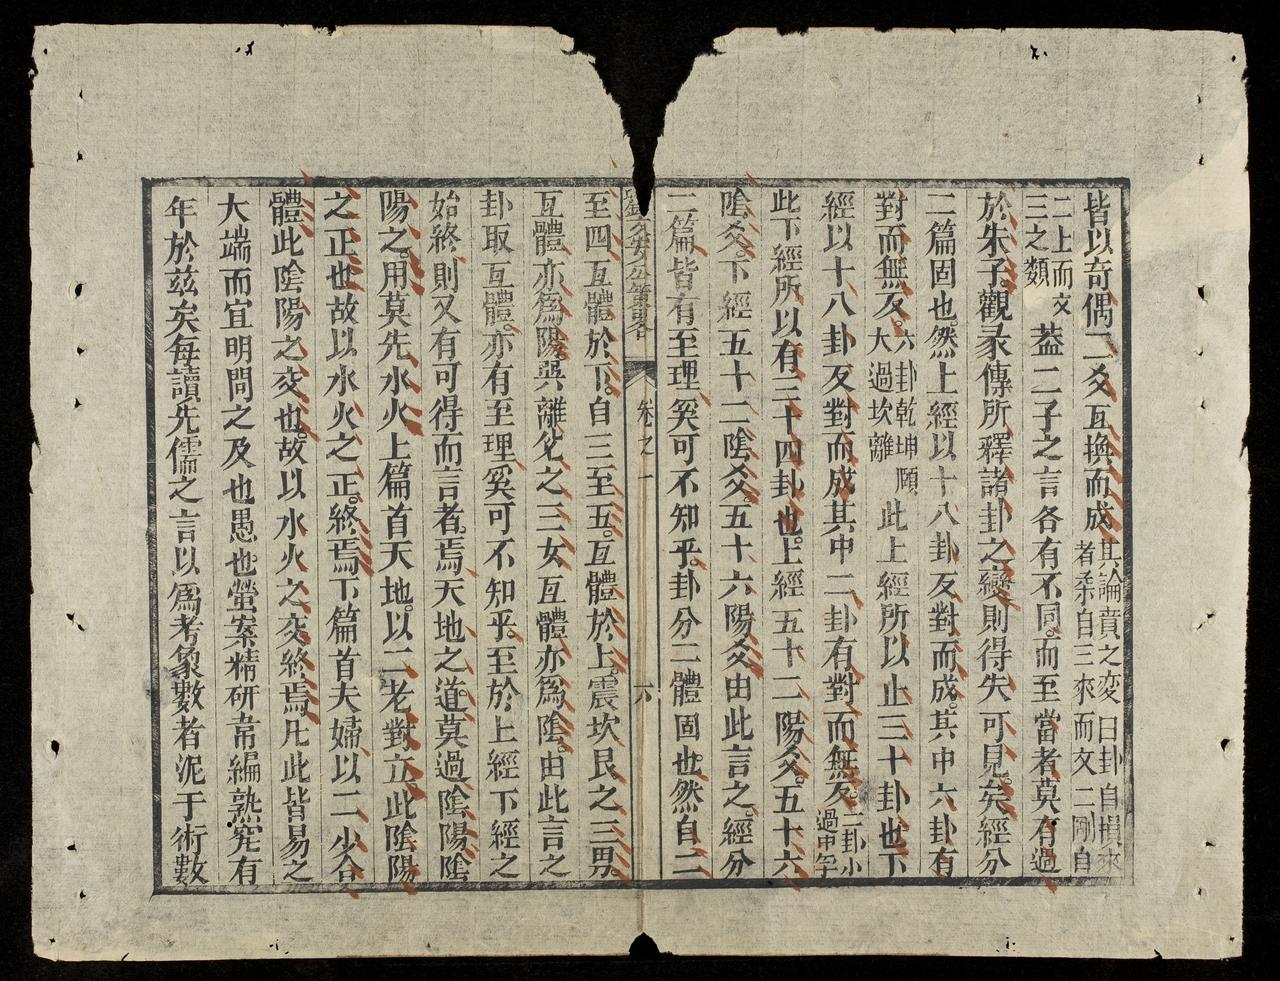 皆以奇偶二爻互換而成其論賁之變曰卦自損來者柔自三來而文二剛自
二上而文三之類蓋二子之言各有不同而至當者莫有過
於朱子觀彖傳所釋諸卦之變則得失可見矣經分
二篇固也然上經以十八卦反對而成其中六卦有
對而無反六卦乾坤頤大過坎離此上經所以止三十卦也下
經以十八卦反對而成其中二卦有對而無反二卦小過中孚
此下經所以有三十四卦也上經五十二陽爻五十六
陰爻下經五十二陰爻五十六陽爻由此言之經分
二篇皆有至理奚可不知乎卦分二體固也然自二
卷之一 六
至四互體於下自三至五互體於上震坎艮之三男
互體亦爲陽巽離兌之三女互體亦爲陰由此言之
卦取互體亦有至理奚可不知乎至於上經下經之
始終則又有可得而言者焉天地之道莫過陰陽陰
陽之用莫先水火上篇首天地以二老對立此陰陽
之正也故以水火之正終焉下篇首夫婦以二少合
體此陰陽之交也故以水火之交終焉凡此皆易之
大端而宜明問之及也愚也螢案精研韋編熟究有
年於茲矣每讀先儒之言以爲考象數者泥于術數